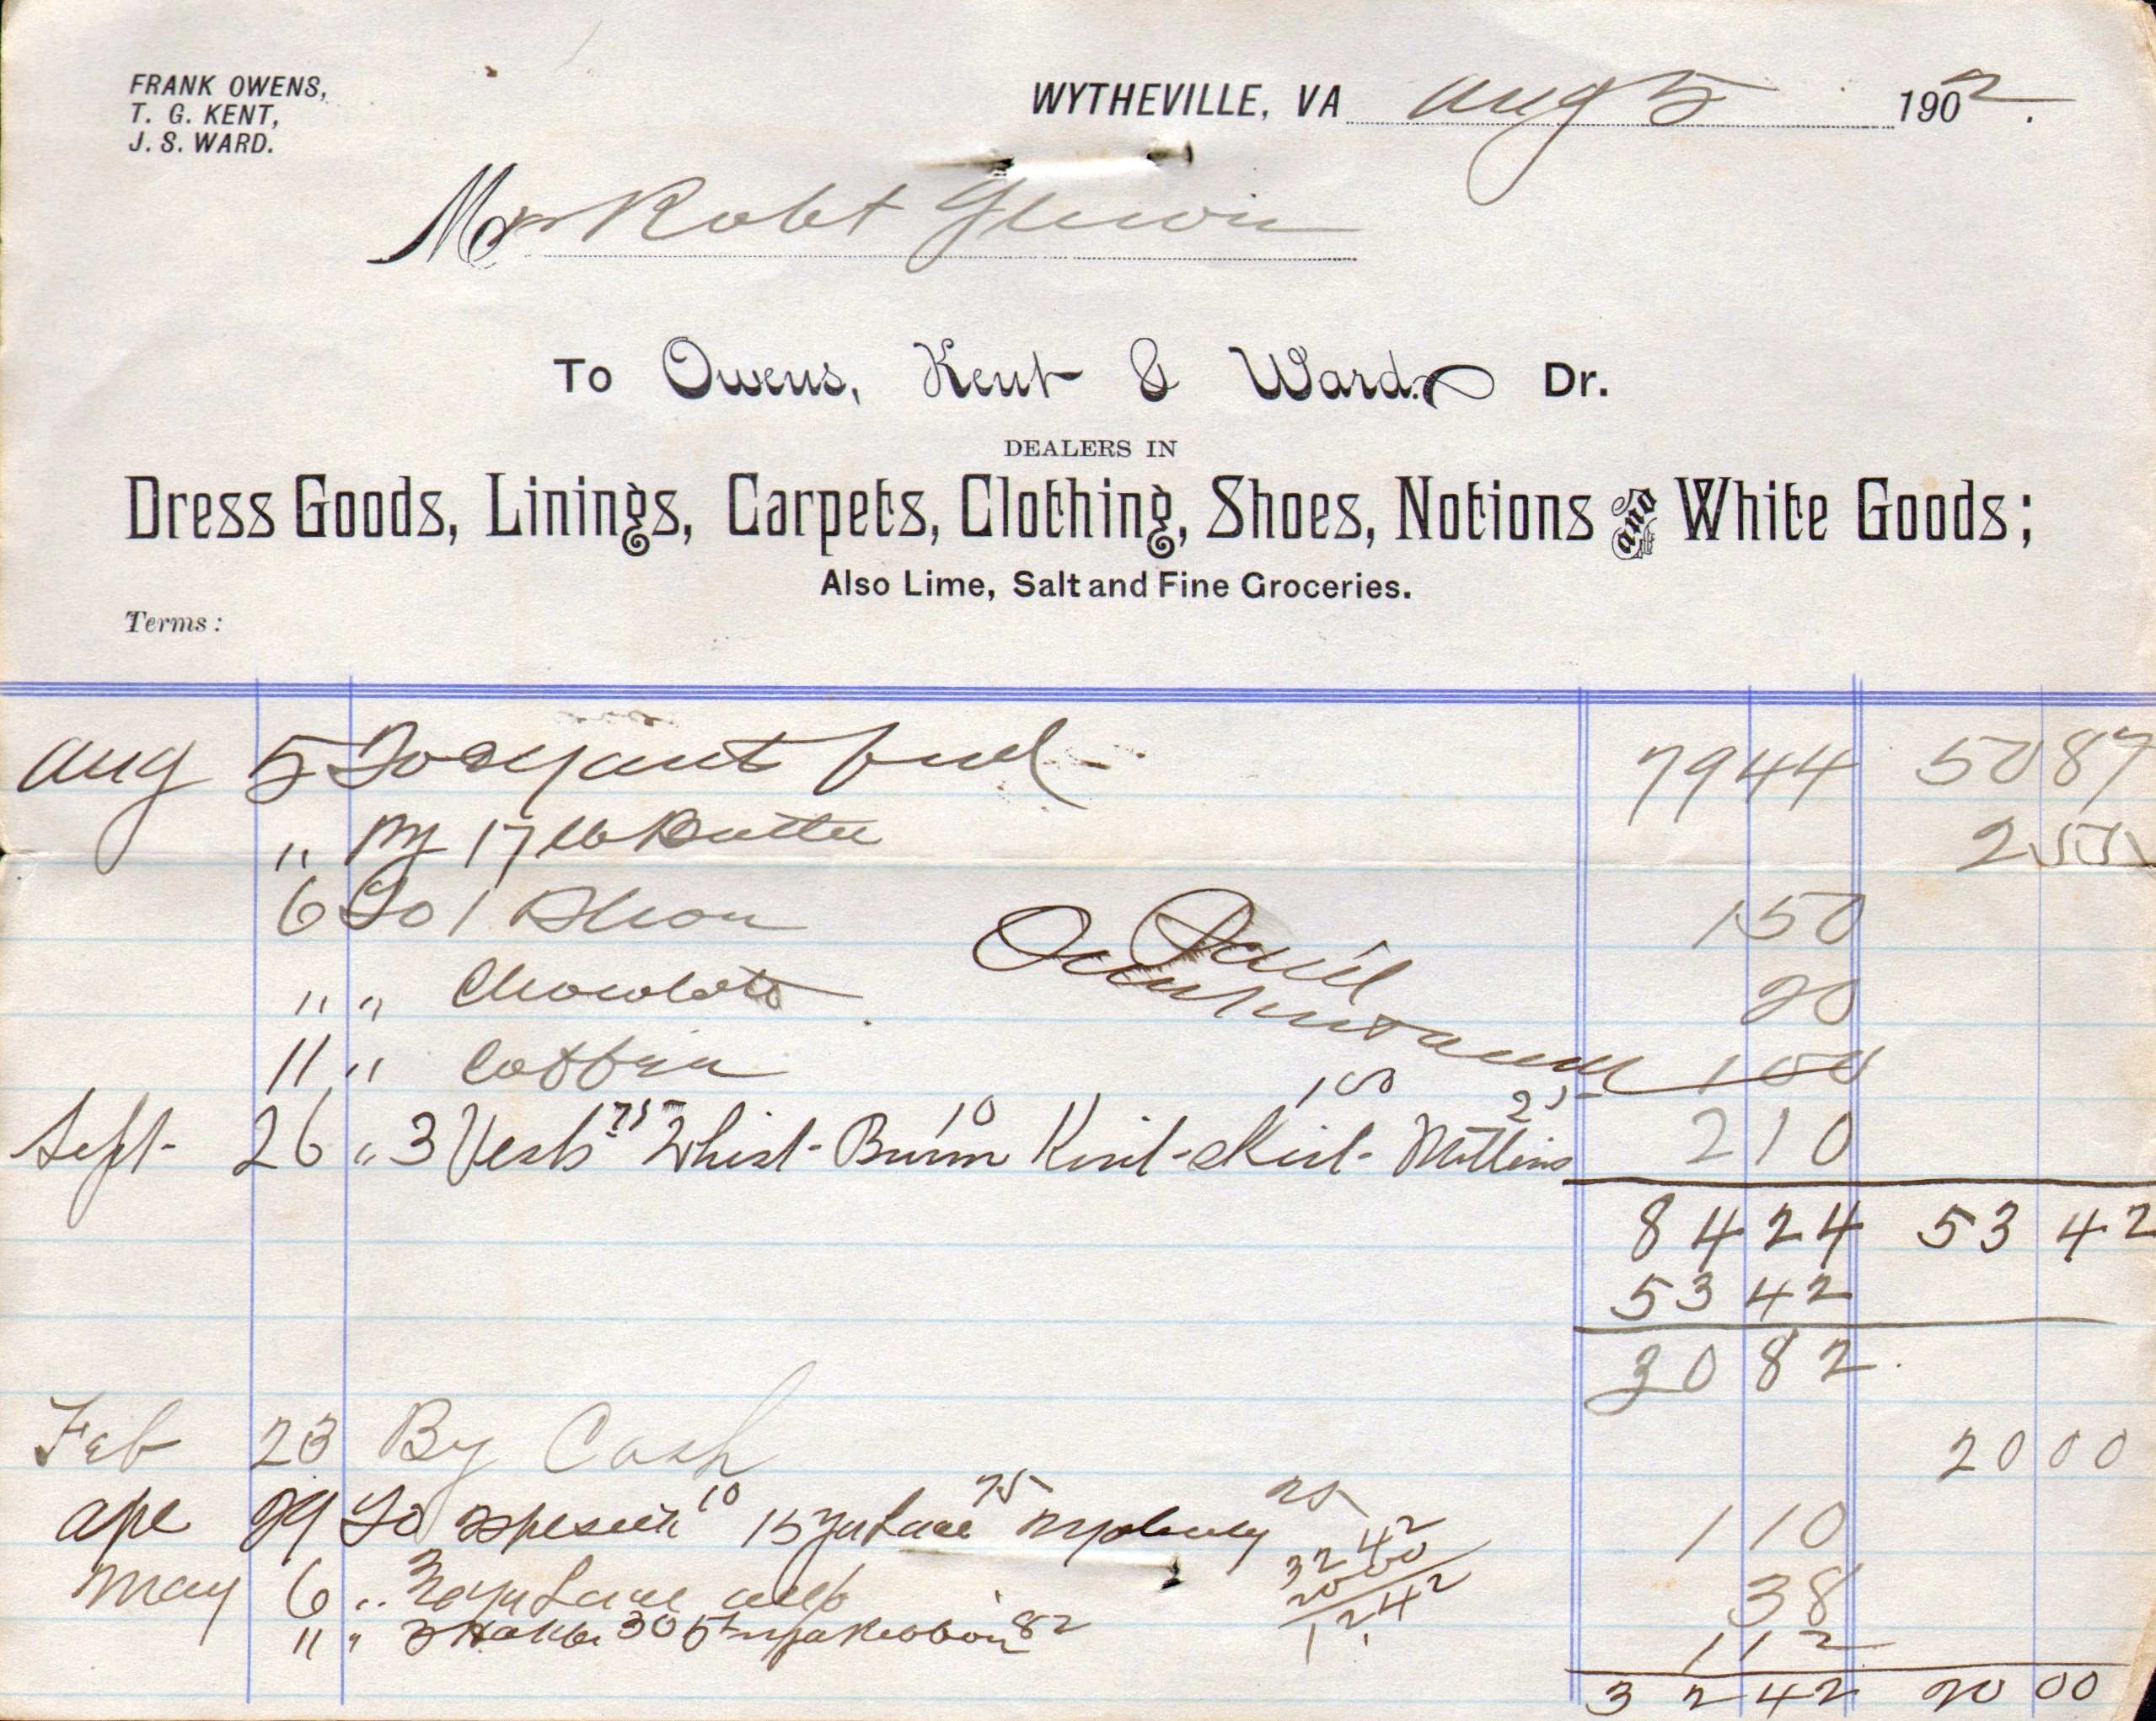 FRANK OWENS,
T. G. KENT,
J. S. WARD.
WYTHEVILLE, VA Aug 5 1902.
Mrs Robt
To Owens, Kent & Ward. Dr.
DEALERS IN
Dress Goods, Linings, Carpets, Clothing, Shoes, Notions and White Goods;
Also Lime, Salt and Fine Groceries.
Terms:
Aug 5 To 79 44 50 87
" By 17 lb Butter 2 55
6 To 1 1 50
" " Chocolate 20
11 " 1 00
Paid
Sept 26 " 3 Vests 75 Whisk Broom 10 Knit Skirt 100 Mittens 25 2 10
84 24 53 42
53 42
30 82
Feb 23 By Cash 20 00
Apr 29 To 10 15 yd Lace 75 25 1 10
32 42
20 00
12 42
May 6 " Lace 38
" " 30 82 1 12
32 42 20 00